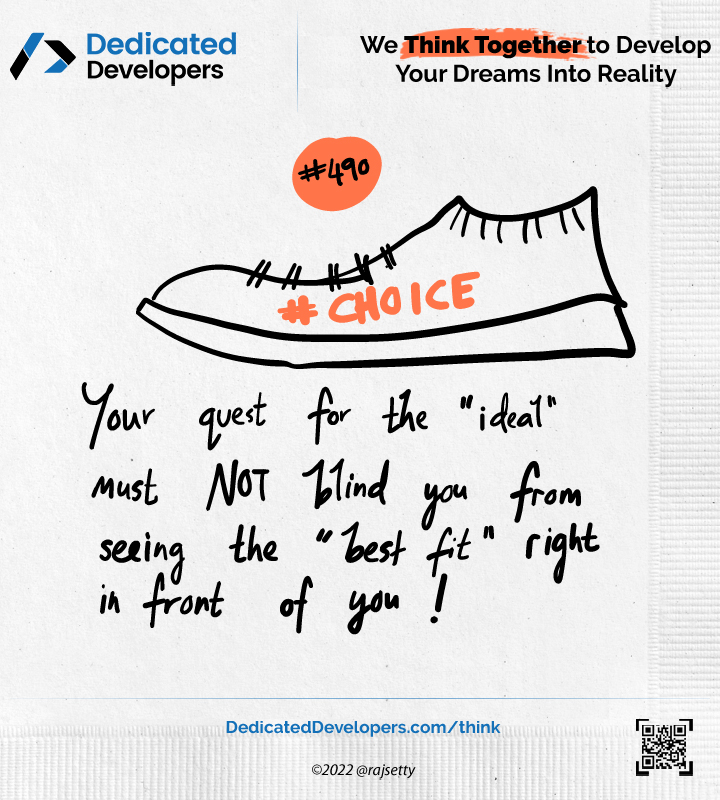 Dedicated
Developers
We Think Together to Develop
Your Dreams Into Reality
#490
# CHOICE
Your quest for the "ideal"
must NOT blind you from
seeing the "best fit" right
in front of you !
DedicatedDevelopers.com/think
©2022 @rajsetty